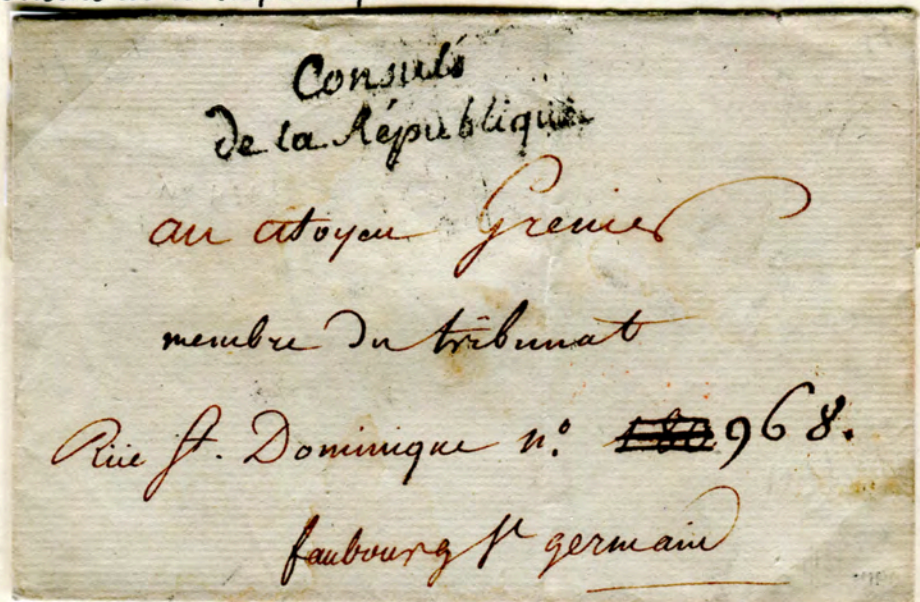 Consuls
de la République
au citoyen Grenier
membre du tribunat
Rüe St. Dominique n.º 968.
faubourg St germain